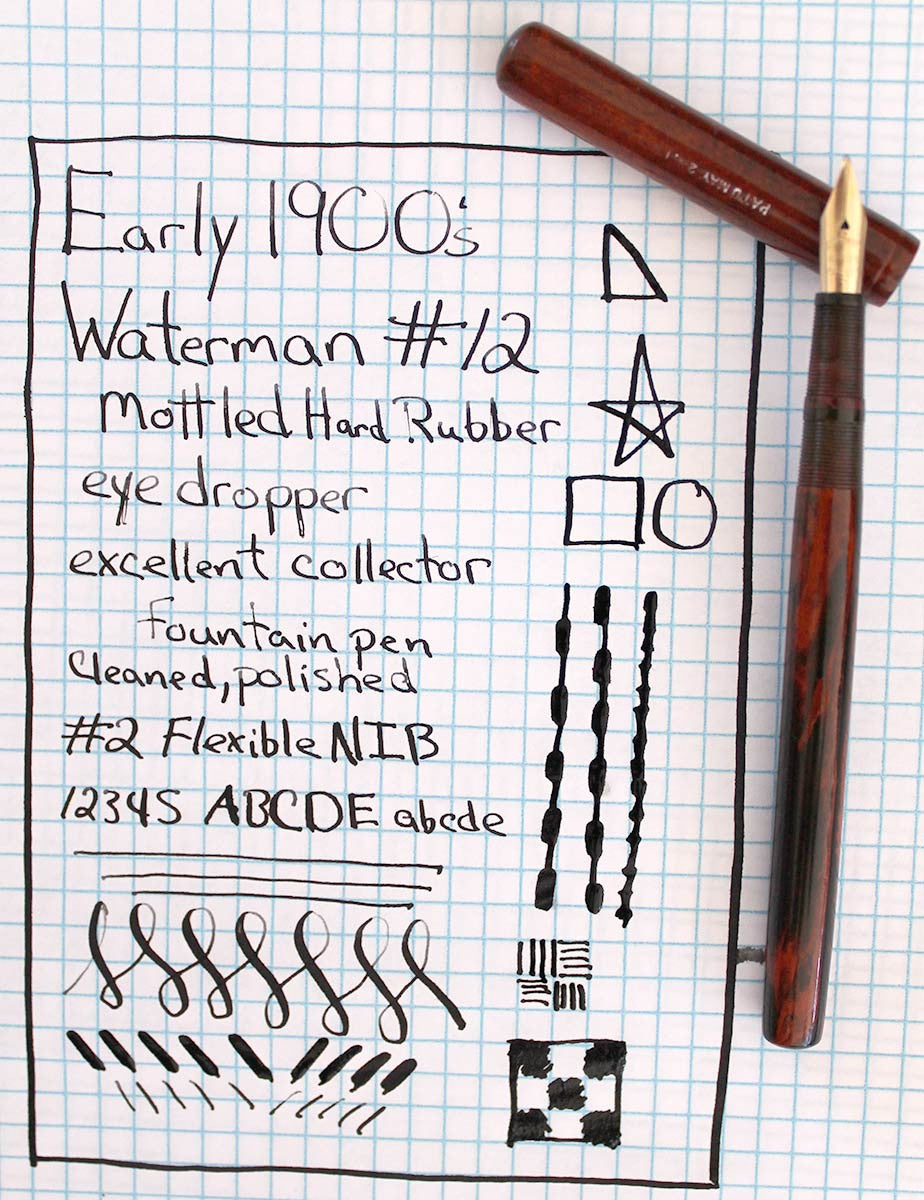 Early 1900's
Waterman #12
Mottled Hard Rubber
eye dropper
excellent collector
fountain pen
Cleaned, polished
#2 Flexible NIB
12345 ABCDE abcde